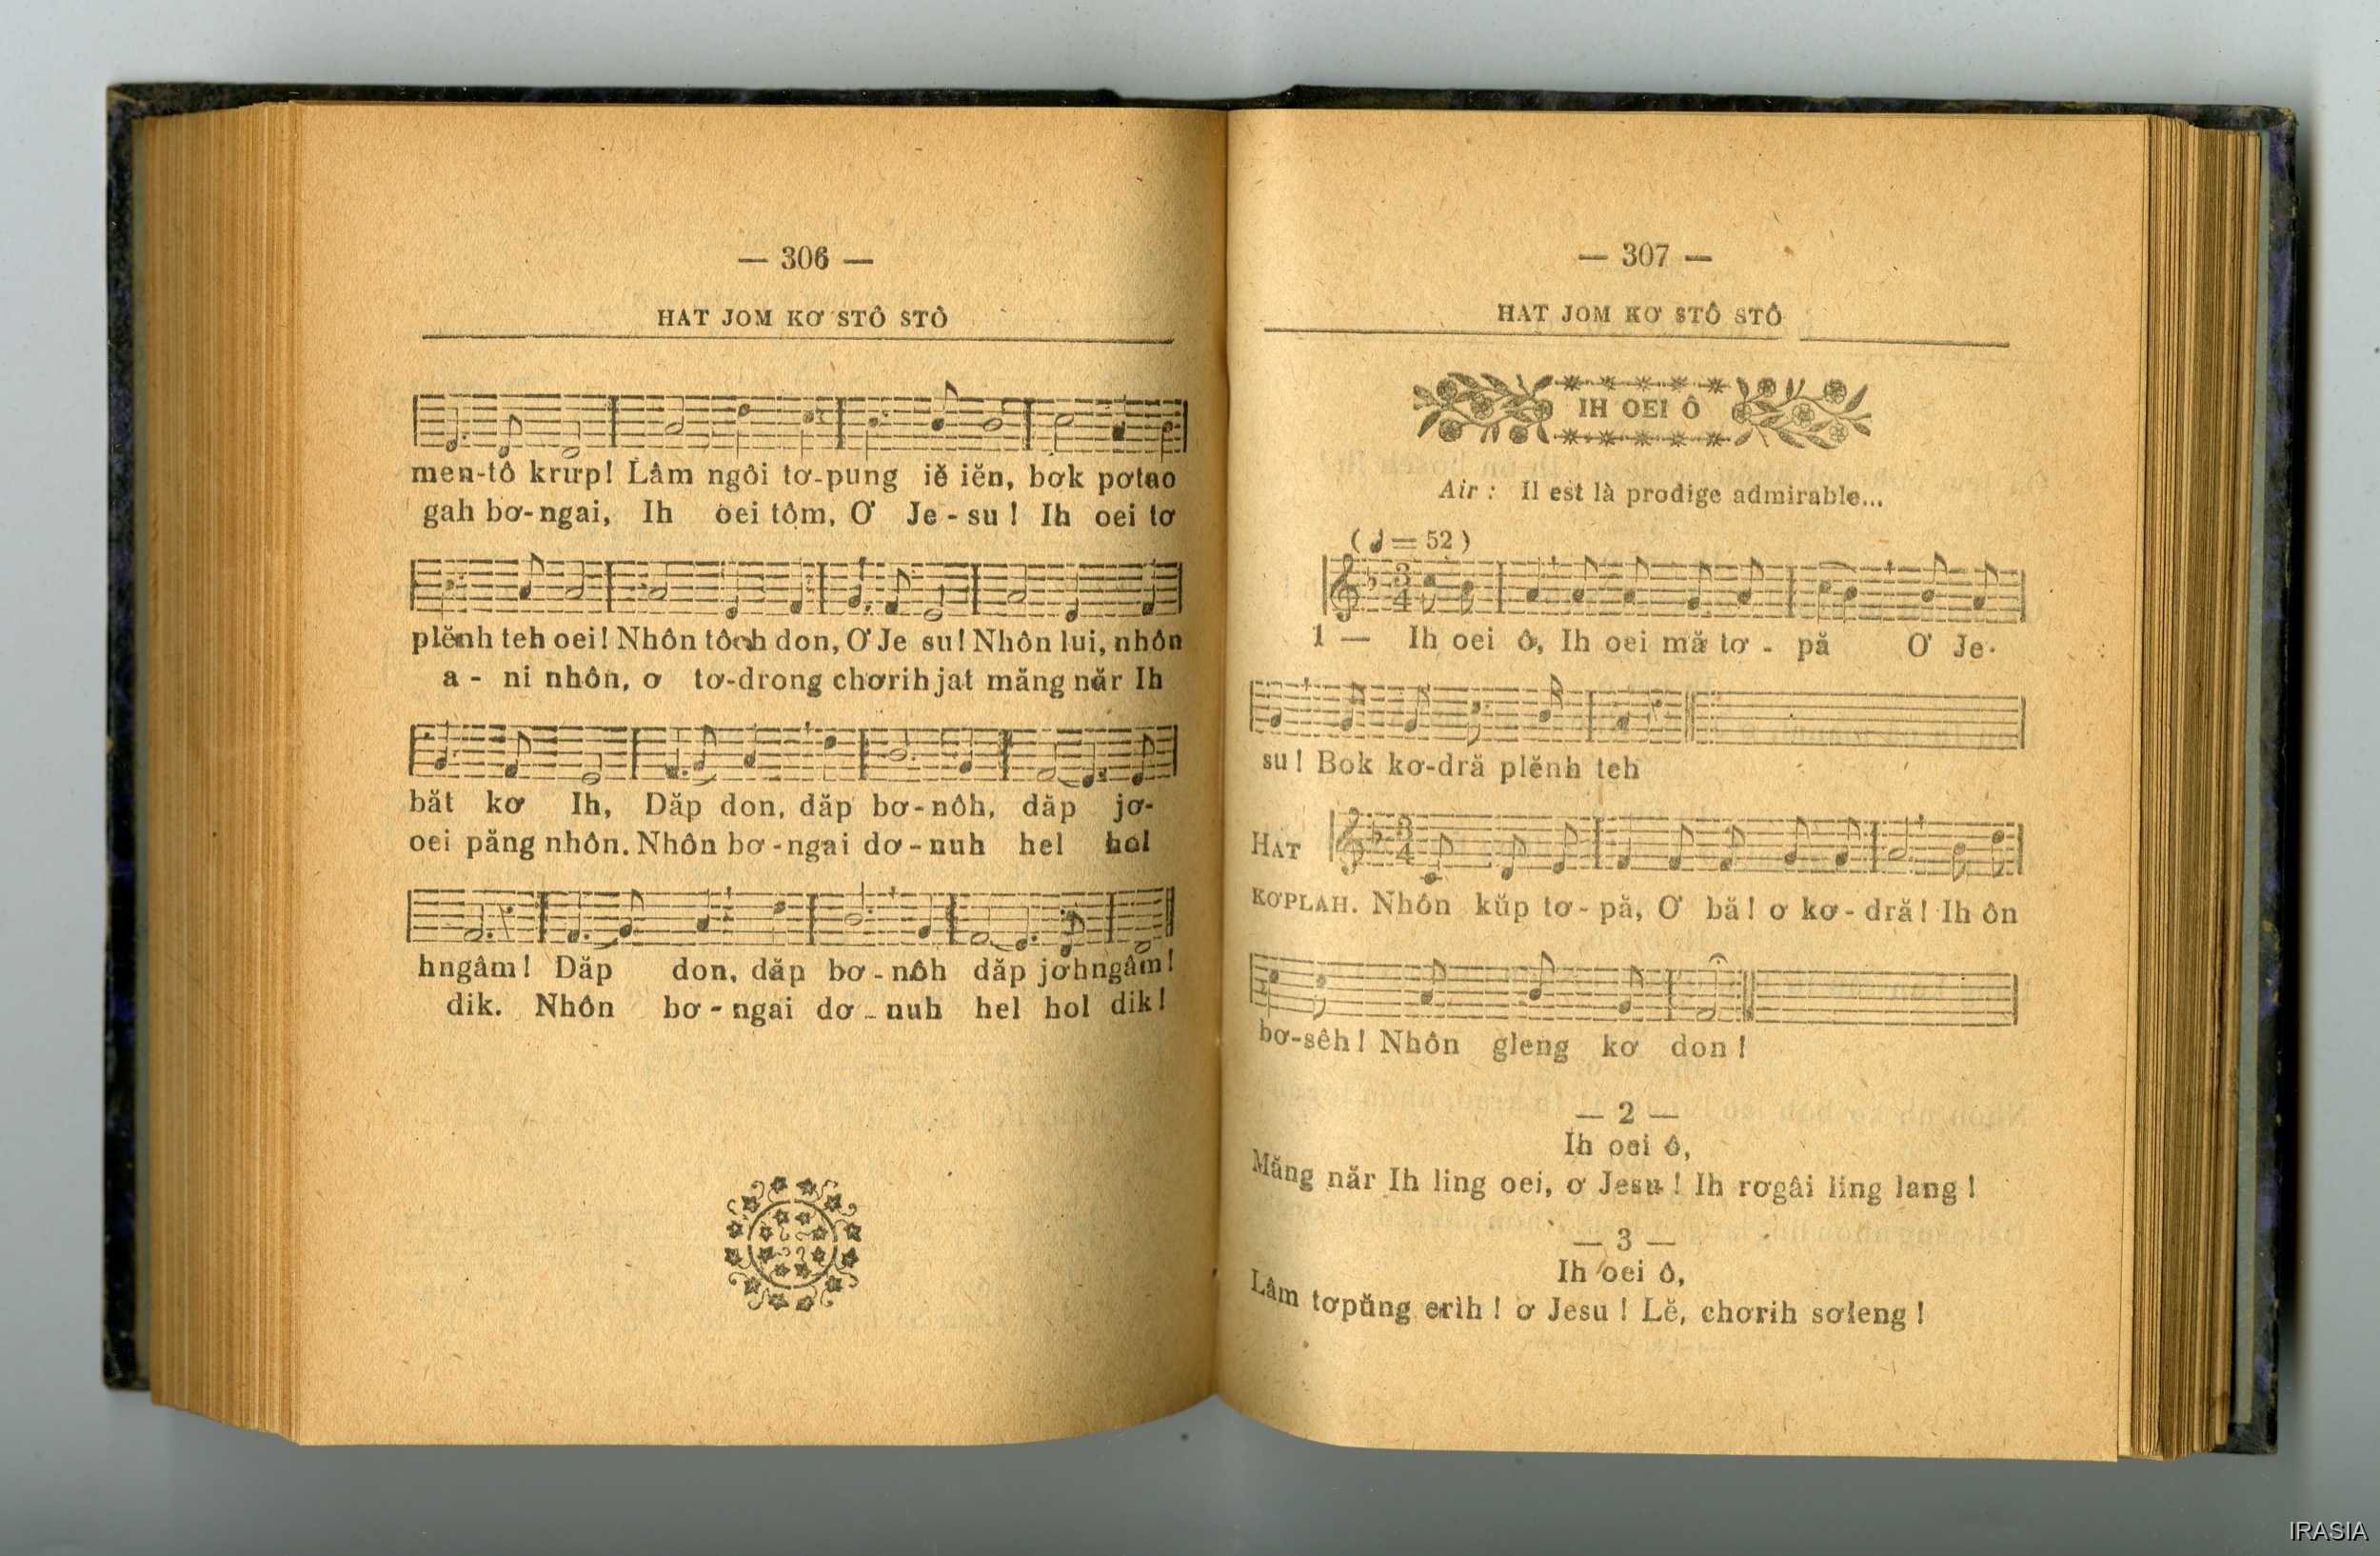 — 306 —
HAT JOM KƠ STÔ STÔ
men-tô krưp! Lâm ngôi tơ-pung iĕ iĕn, bơk pơtao
gah bơ-ngai, Ih oei tôm, Ơ Je-su! Ih oei tơ
plĕnh teh oei! Nhôn tôch don, Ơ Je su! Nhôn lui, nhôn
a - ni nhôn, ơ tơ-drong chơrih jat măng năr Ih
băt kơ Ih, Dăp don, dăp bơ-nôh, dăp jơ-
oei păng nhôn. Nhôn bơ-ngai dơ-nuh hel hol
hngâm! Dăp don, dăp bơ-nôh dăp jơhngâm!
dik. Nhôn bơ-ngai dơ-nuh hel hol dik!
— 307 —
HAT JOM KƠ STÔ STÔ
IH OEI Ô
Air : Il est là prodige admirable...
( ♩ = 52 )
3/4
1 — Ih oei ô, Ih oei mă tơ - pă Ơ Je-
su! Bok kơ-dră plĕnh teh
HAT
3/4
KƠPLAH. Nhôn kŭp tơ-pă, Ơ bă! ơ kơ-dră! Ih ôn
bơ-sêh! Nhôn gleng kơ don!
— 2 —
Ih oei ô,
Măng năr Ih ling oei, ơ Jesu ! Ih rơgâi ling lang !
— 3 —
Ih oei ô,
Lâm tơpŭng erih ! ơ Jesu ! Lĕ, chơrih sơleng !
IRASIA